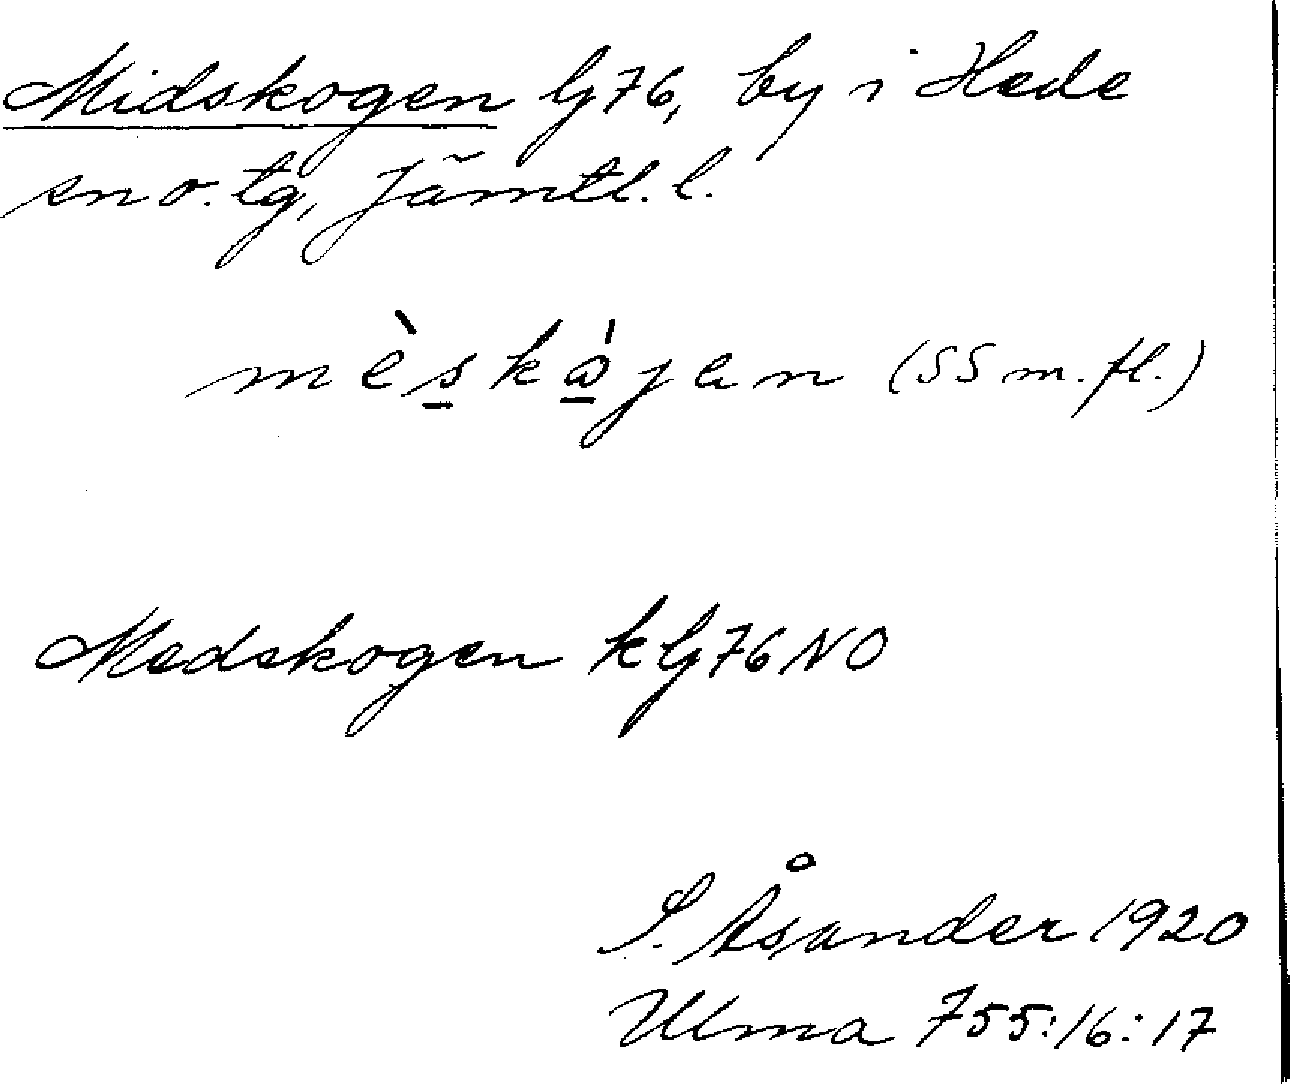 Midskogen G76, by i Hede
sn o. tg, Jämtl. l.
mèskájan (SS m.fl.)
Medskogen k G76 NO
S. Åsander 1920
Ulma 755:16:17